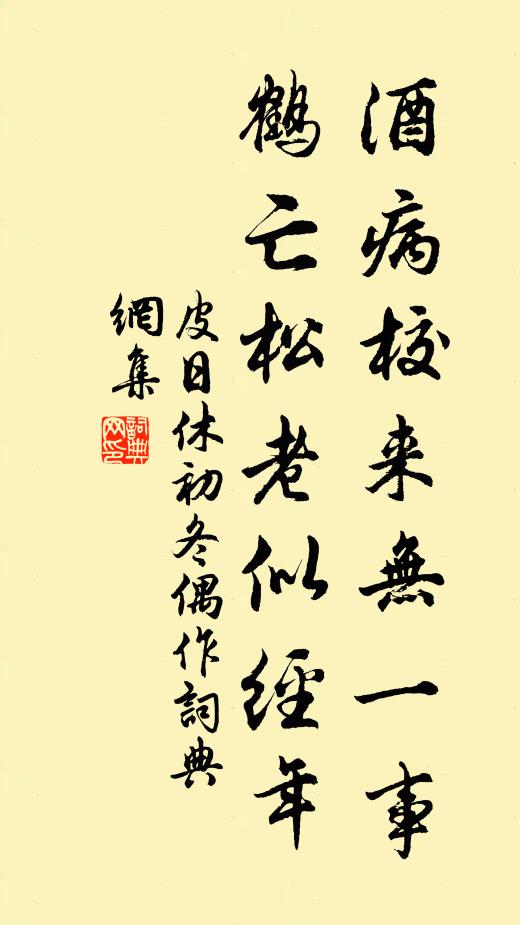 酒病校来無一事
鶴亡松老似經年
皮日休初冬偶作詞典
網集
詞典
网印